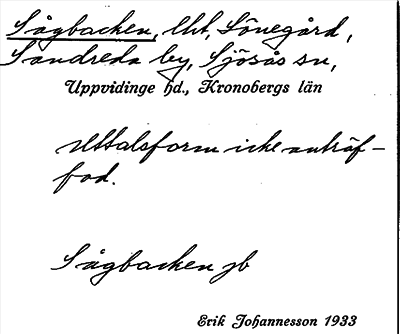 Sågbacken, lht, Sönegård,
Sandreda by, Sjösås sn,
Uppvidinge hd., Kronobergs län
Uttalsform icke anträf-
fad.
Sågbacken jb
Erik Johannesson 1933